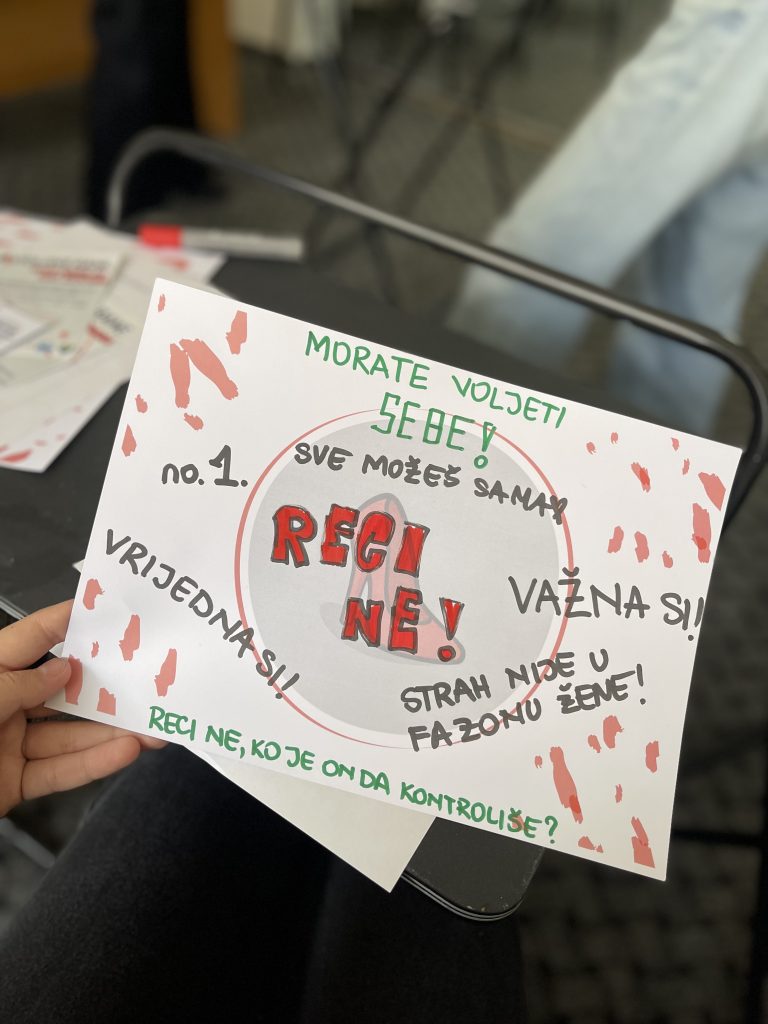 MORATE VOLJETI
SEBE!
SVE MOŽEŠ SAMA!
no. 1.
RECI
NE!
VRIJEDNA SI!
VAŽNA SI!!
STRAH NIJE U
FAZONU ŽENE!
RECI NE, KO JE ON DA KONTROLIŠE?